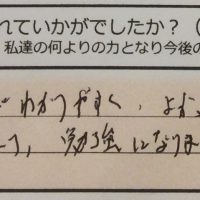 れていかがでしたか？（
私達の何よりの力となり今後の
わかりやすく、よか
て、勉強になりま